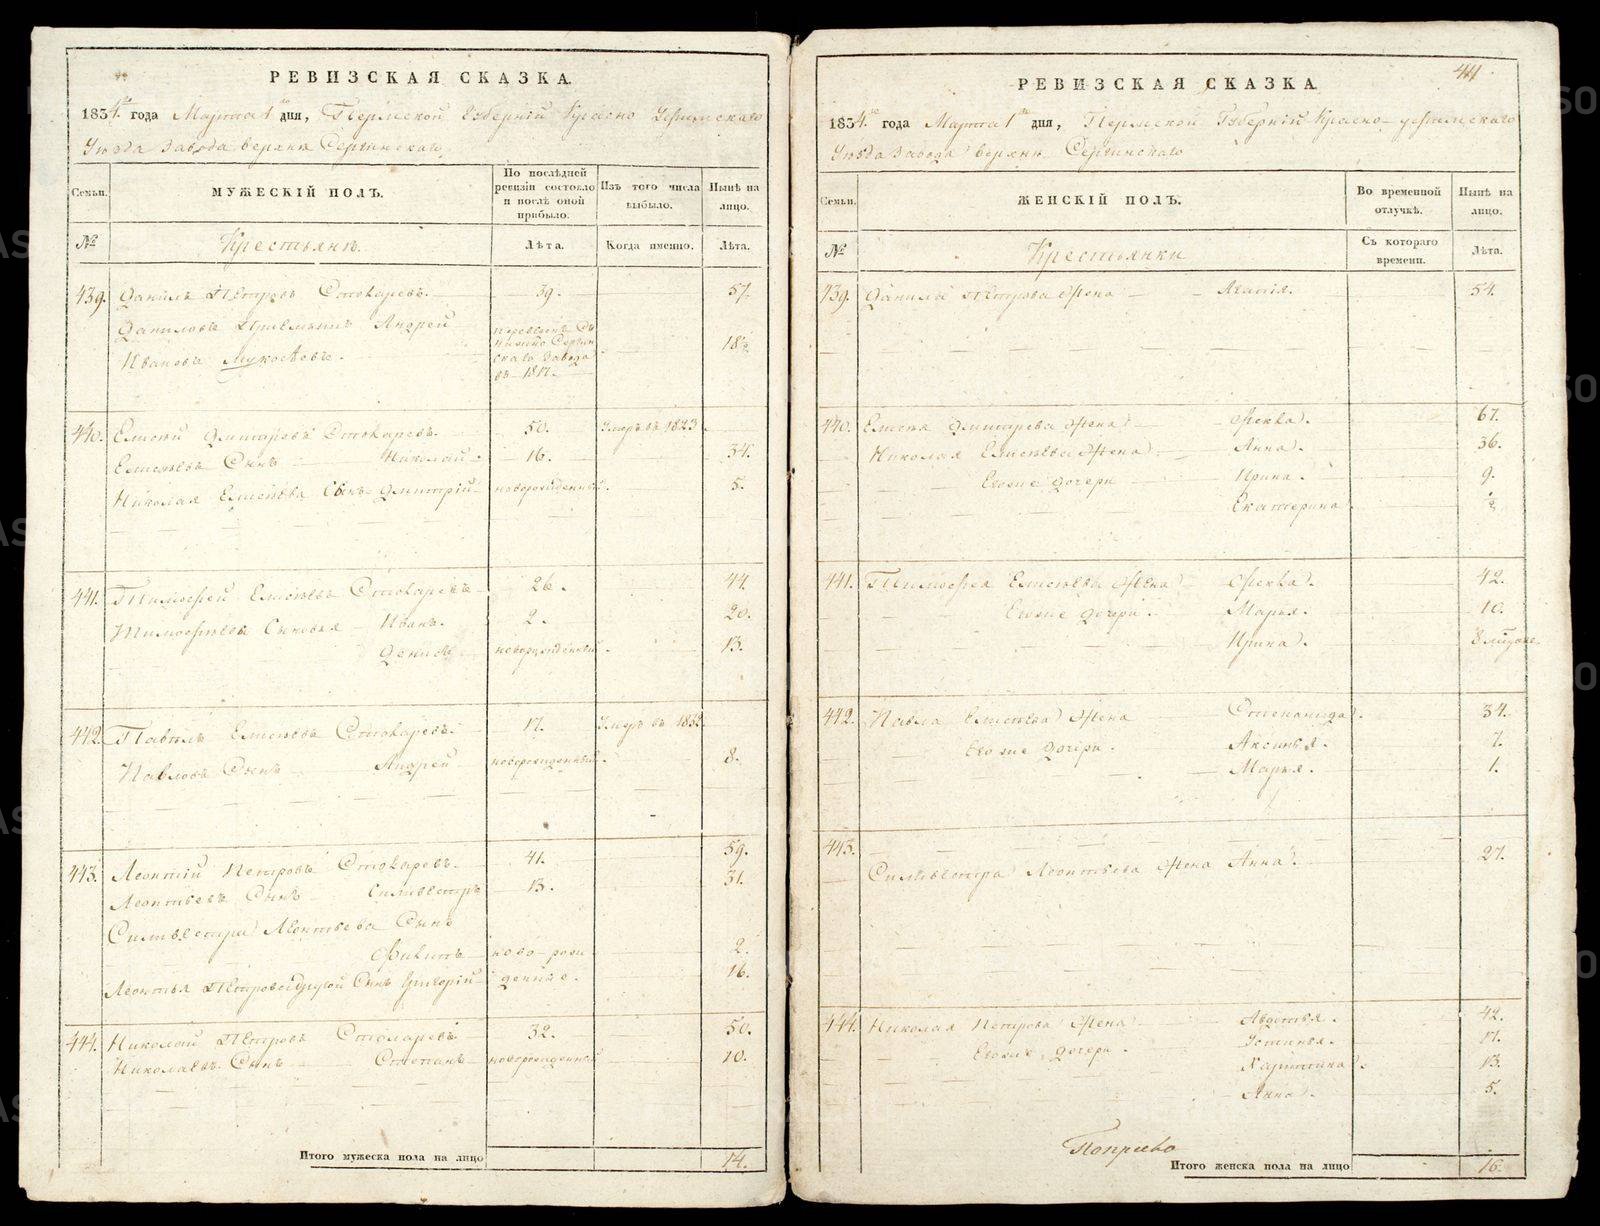 РЕВИЗСКАЯ СКАЗКА.
1834го года Марта 1го дня, Пермской Губернiи Красно Уфимскаго
Уѣзда Завода верхне Сергинскаго
Семьи.
МУЖЕСКIЙ ПОЛЪ.
По последней ревизiи состояло и послѣ оной прибыло.
Изъ того числа выбыло.
Нынѣ на лицо.
№
Крестьяне.
Лѣта.
Когда именно.
Лѣта.
439. Данила Петровъ Стокаревъ. 39. 57.
Даниловъ Прiемышъ Андрей
Ивановъ 18½
Завода
въ 1817.
440. Елисей Дмитрiевъ Стокаревъ. 50. Умеръ въ 1823.
Елисѣевъ Сынъ Николай 16. 34.
Николая Елисѣева Сынъ Дмитрiй новорожденный. 5.
441. Тимофей Елисѣевъ Стокаревъ 26. 44.
Тимофѣевы Сыновья Иванъ. 2. 20.
Денисъ новорожденный. 13.
442. Павелъ Елисѣевъ Стокаревъ. 17. Умеръ въ
Павловъ Сынъ Андрей новорожденный. 8.
443. Леонтiй Петровъ Стокаревъ. 41. 59.
Леонтьевъ Сынъ Сильвестръ 13. 31.
Сильвестра Леонтьева Сынъ
ново-рож 2.
Леонтья Петрова другой Сынъ Григорiй денные. 16.
444. Николай Петровъ 32. 50.
Николаевъ Сынъ Степанъ новорожденный 10.
Итого мужеска пола на лицо 14.
РЕВИЗСКАЯ СКАЗКА
1834го года Марта 1го дня, Пермской Губернiи Красно-уфимскаго
Уѣзда Завода верхне Сергинскаго
Семьи.
ЖЕНСКIЙ ПОЛЪ.
Во временной отлучкѣ.
Нынѣ на лицо.
№
Крестьянки
Съ котораго времени.
Лѣта.
439. Данила Петрова Жена Агапiя. 54.
440. Елисея Дмитрева Жена Фекла. 67.
Николая Елисѣева Жена Анна. 36.
Егоже дочери Ирина. 9.
Екатерина ½
441. Тимофея Елисѣева Жена Фекла. 42.
Егоже дочери. Марья. 10.
Ирина. 8
442. Павла Елисѣева Жена Степанида. 34.
Егоже дочери. Аксинья. 7.
Марья. 1.
443.
Сильвестра Леонтьева Жена Анна. 27.
444. Николая Петрова Жена Авдотья. 42.
Егоже дочери. Устинья. 17.
13.
Анна. 5.
Итого женска пола на лицо 16.